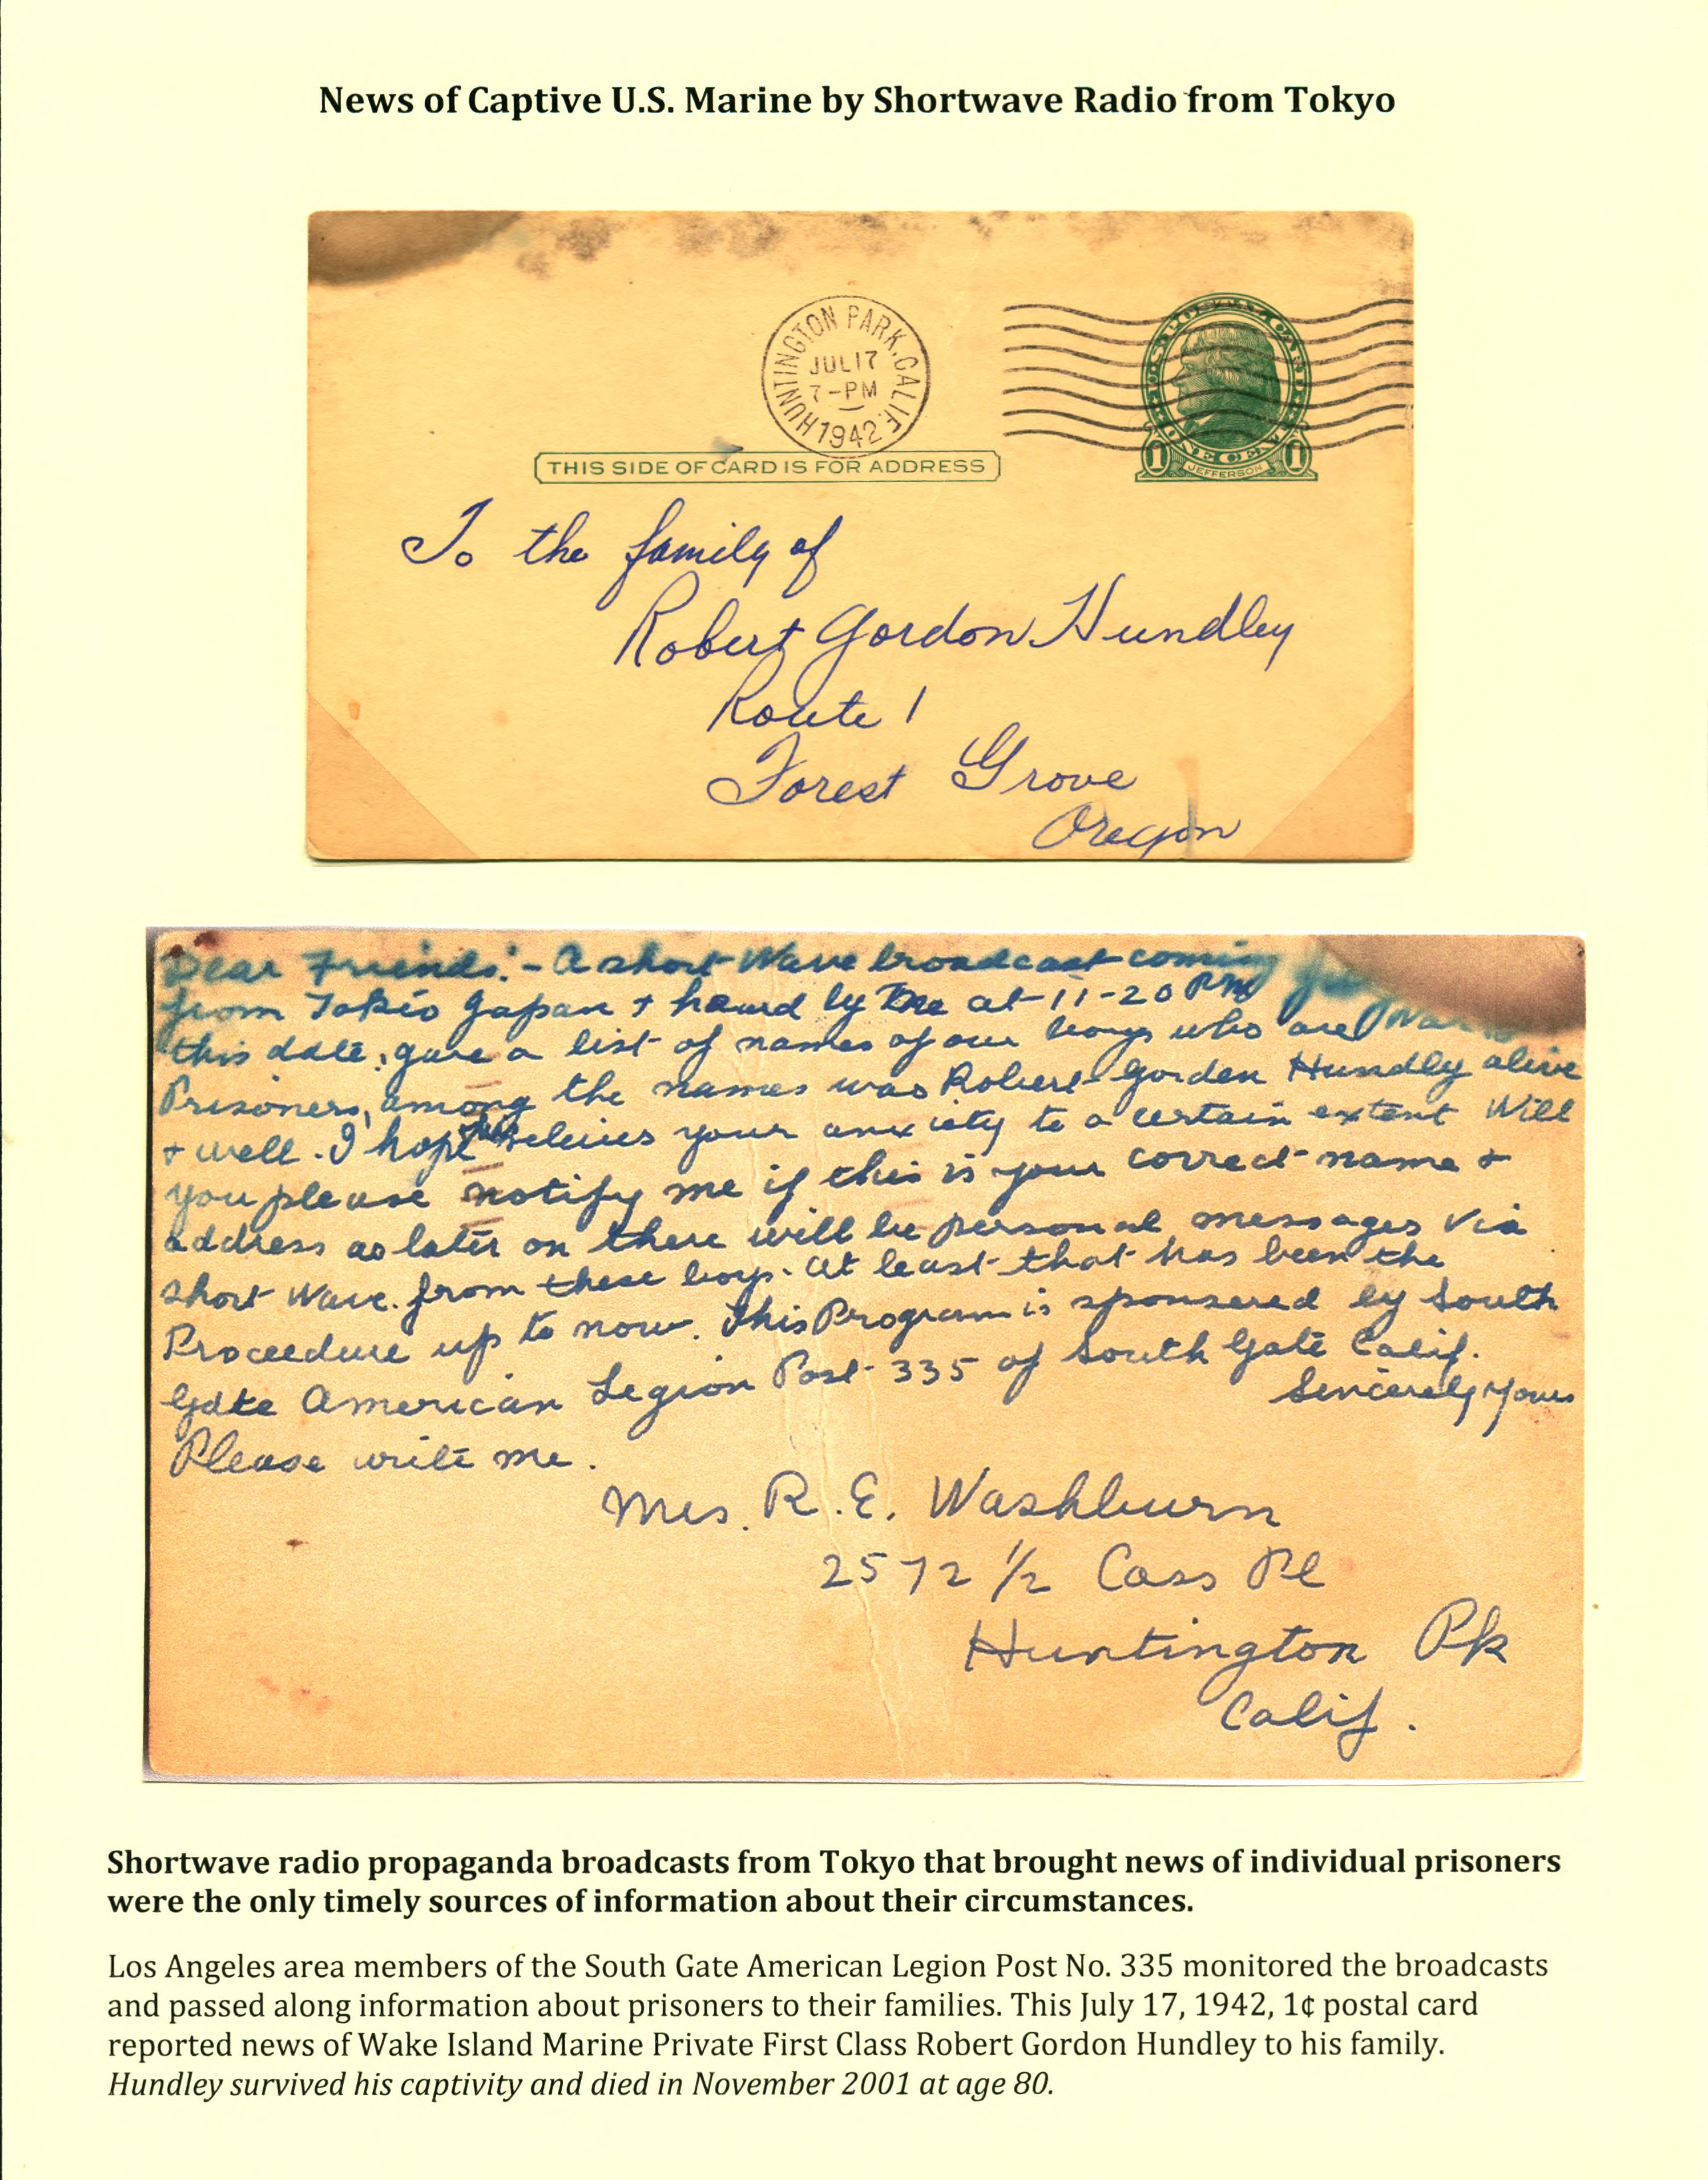 News of Captive U.S. Marine by Shortwave Radio from Tokyo
HUNTINGTON PARK, CALIF.
JUL 17
7-PM
1942
U.S. POSTAL CARD
ONE CENT
1 JEFFERSON 1
THIS SIDE OF CARD IS FOR ADDRESS
To the family of
Robert Gordon Hundley
Route 1
Forest Grove
Oregon
Dear Friends:- A short Wave broadcast coming
from Tokio Japan + heard by me at 11-20 PM
this date, gave a list of names of our boys who are War
Prisoners, among the names was Robert Gorden Hundly alive
+ well. I hope this releives your anxiety to a certain extent Will
you please notify me if this is your correct name +
address as later on there will be personal messages Via
short Wave from these boys. At least that has been the
Proceedure up to now. This Program is sponsered by South
Gate American Legion Post 335 of South Gate Calif.
Sincerely Yours
Please write me.
Mrs. R. E. Washburn
2572 1/2 Cass Pl
Huntington Pk
Calif.
Shortwave radio propaganda broadcasts from Tokyo that brought news of individual prisoners
were the only timely sources of information about their circumstances.
Los Angeles area members of the South Gate American Legion Post No. 335 monitored the broadcasts
and passed along information about prisoners to their families. This July 17, 1942, 1¢ postal card
reported news of Wake Island Marine Private First Class Robert Gordon Hundley to his family.
Hundley survived his captivity and died in November 2001 at age 80.